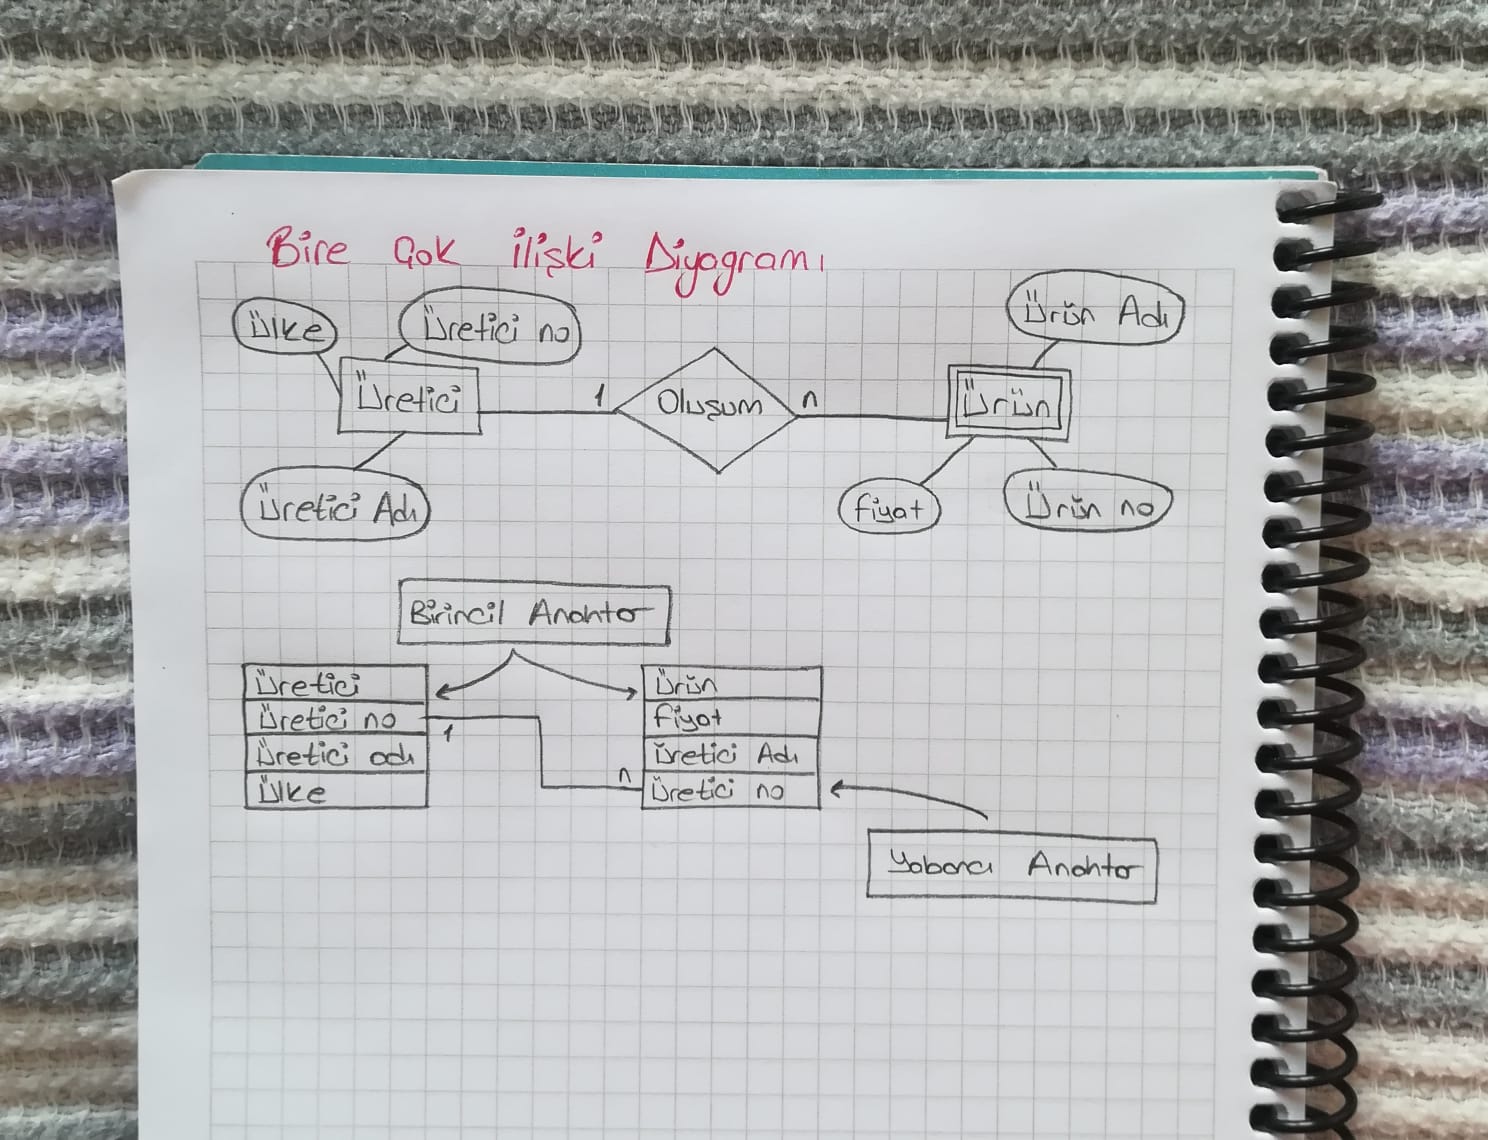 Bire Çok ilişki Diyagramı
Ülke
Üretici no
Üretici
Üretici Adı
1
Oluşum
n
Ürün Adı
Ürün
fiyat
Ürün no
Birincil Anahtar
Üretici
Üretici no
Üretici adı
Ülke
1
n
Ürün
fiyat
Üretici Adı
Üretici no
Yabancı Anahtar